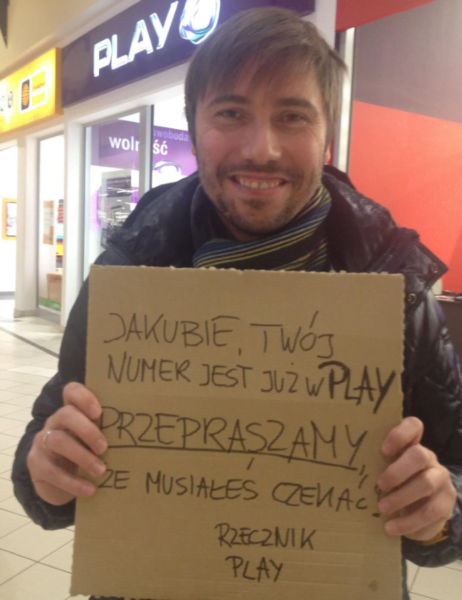 PLAY
wolność
swoboda
JAKUBIE, TWÓJ
NUMER JEST JUŻ W PLAY
PRZEPRASZAMY,
ŻE MUSIAŁEŚ CZEKAĆ!
RZECZNIK
PLAY